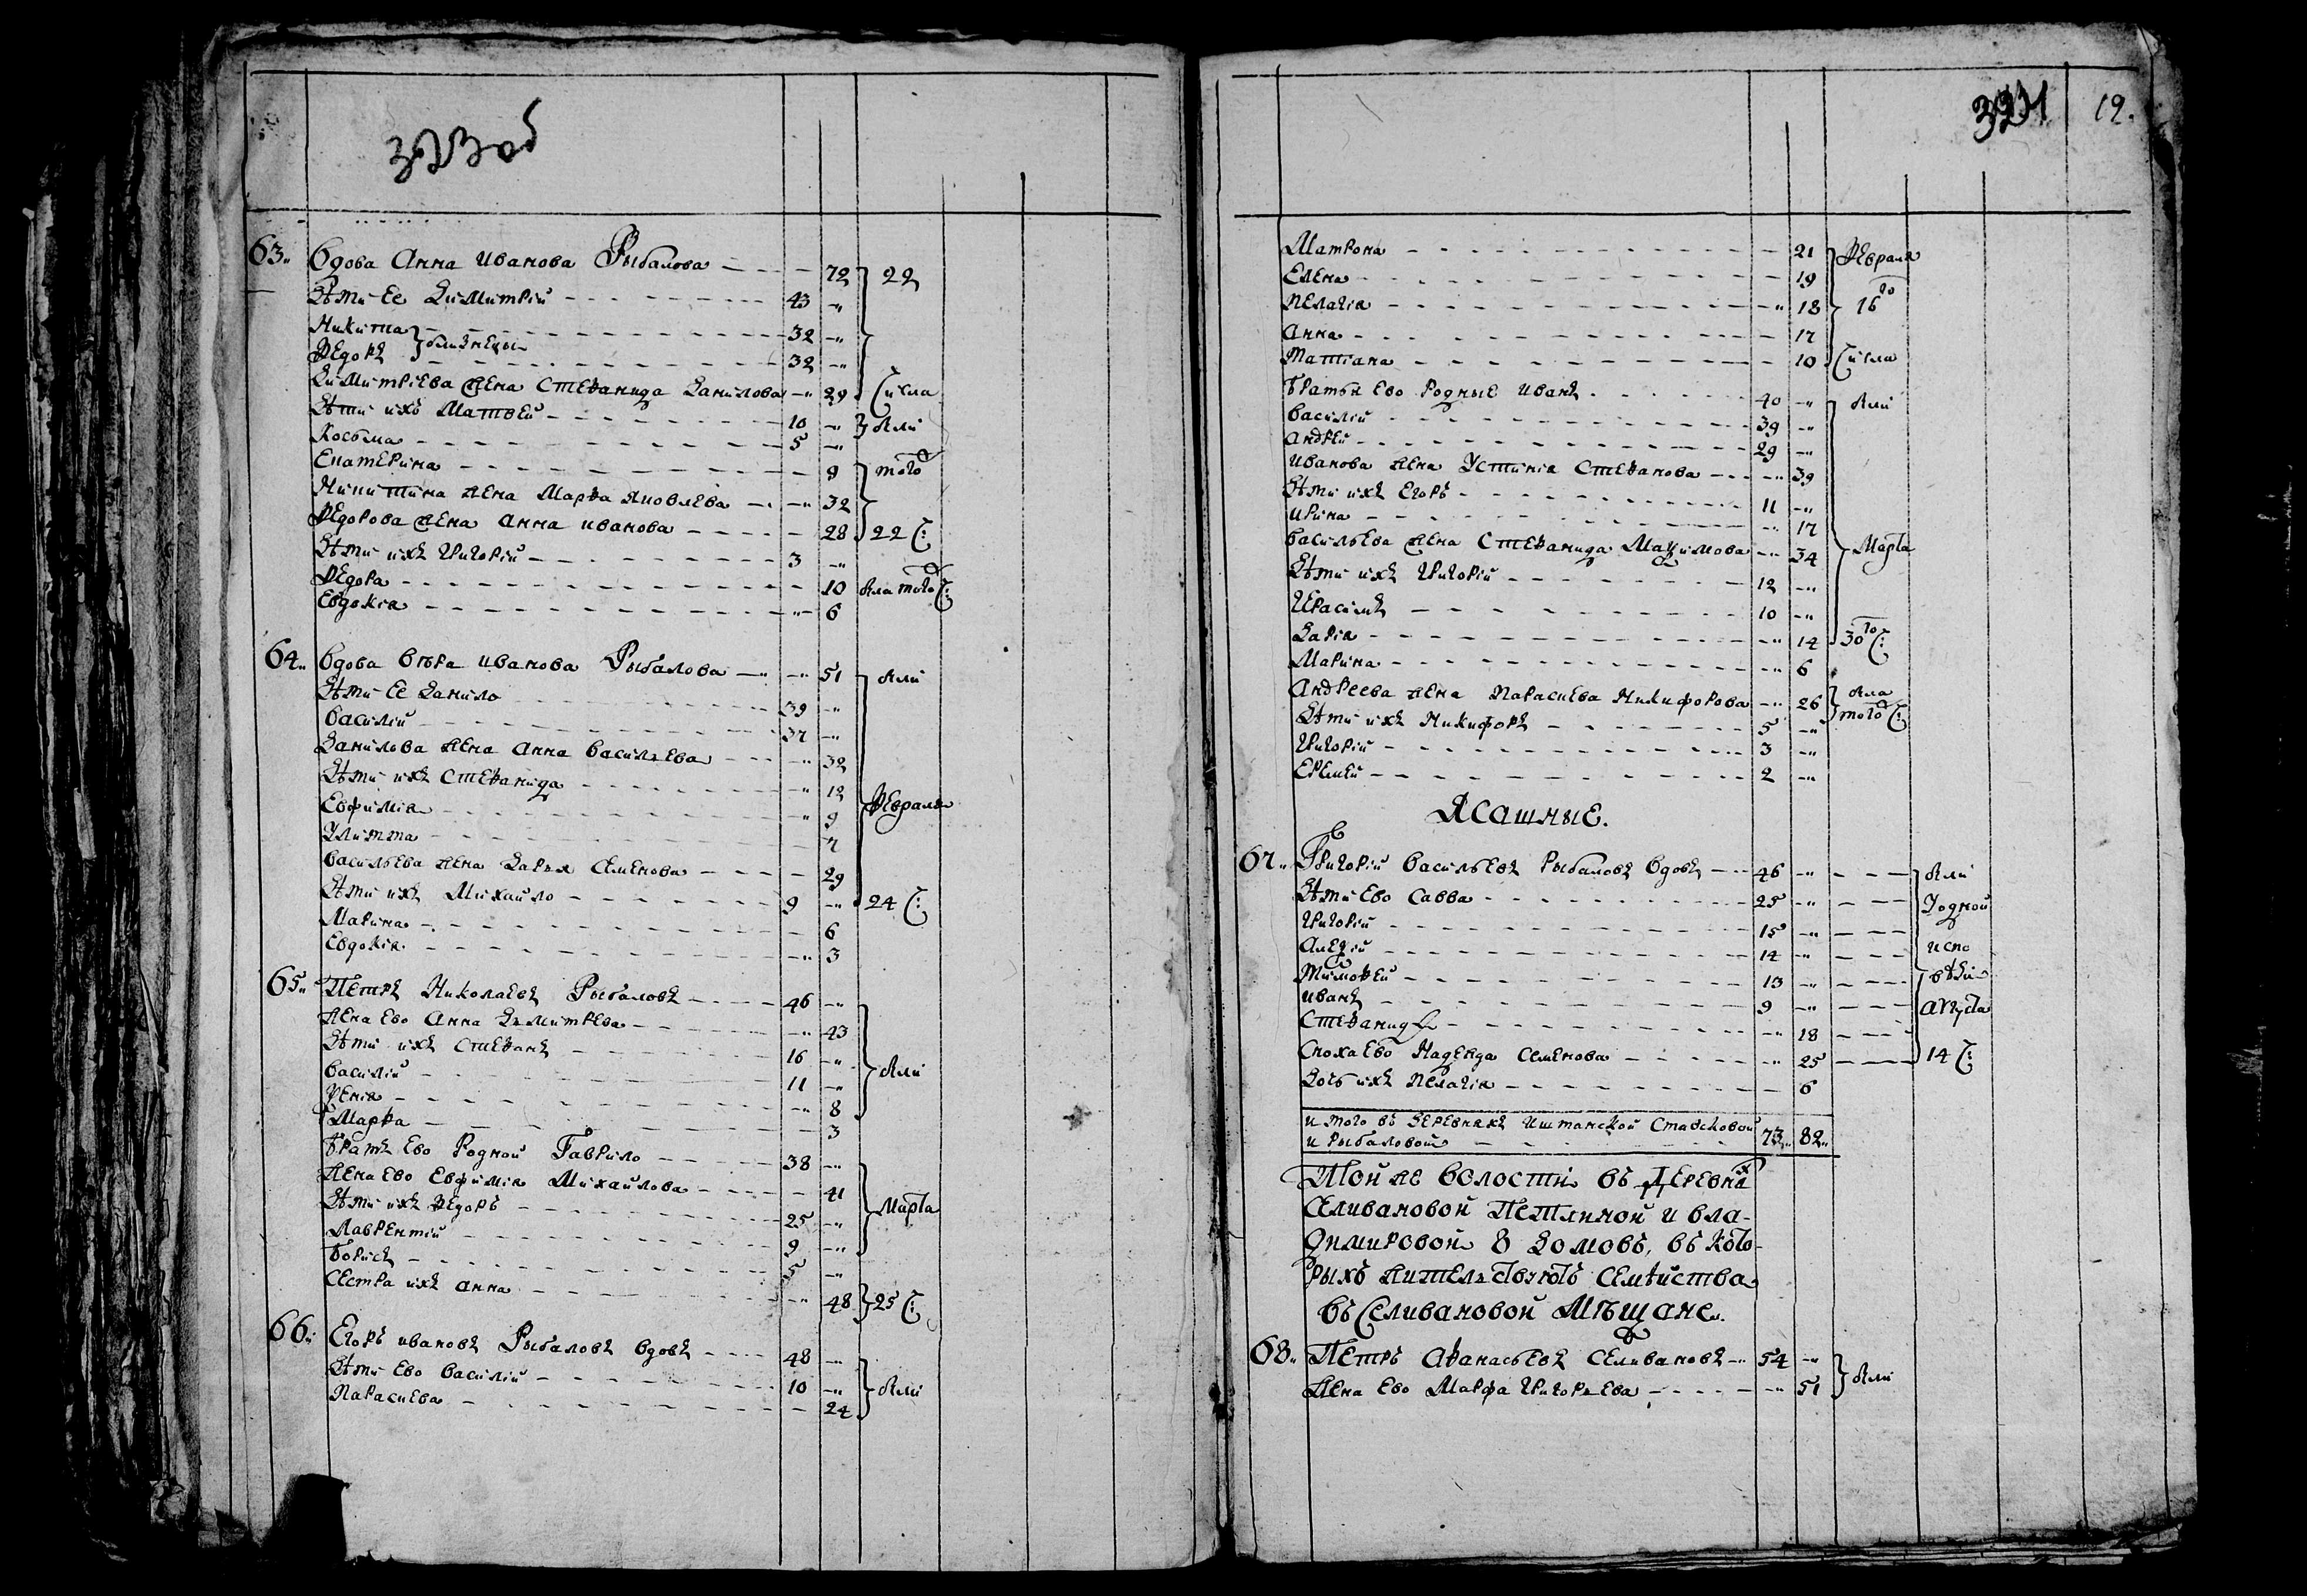 323 об
63. Вдова Анна Иванова Рыбалова 72 22
Дѣти ее Димитрiй 43
Никита 32
близнецы
Федоръ 32
Димитрiева жена Стефанида Данилова 29 числа
Дѣти ихъ Матвей 10 были
Косьма 5
Екатерина 9 того
Никитина жена Марфа Яковлева 32
Федорова жена Анна Иванова 28 22 ч:
Дѣти ихъ Григорiй 3
Федора 10 бла того ч:
Евдокiя 6
64. Вдова Вѣра Иванова Рыбалова 51 были
Дѣти ее Данило 39
Василiй 37
Данилова жена Анна Васильева 32
Дѣти ихъ Стефанида 12
Евфимiя 9 Февраля
Улитта 7
Васильева жена Дарья Семенова 29
Дѣти ихъ Михайло 9 24 ч:
Марина 6
Евдокiя 3
65. Петръ Николаевъ Рыбаловъ 46
Жена ево Анна Дмитрева 43
Дѣти ихъ Стефанъ 16
Василiй 11 были
Фенiя 8
Марфа 3
Братъ ево родной Гаврило 38
Жена ево Евфимiя Михайлова 41
Дѣти ихъ Федоръ 25 Марта
Лаврентiй 9
Борисъ 5
Сестра ихъ Анна 48 25 ч:
66. Егоръ Ивановъ Рыбаловъ вдовъ 48
Дѣти ево Василiй 10 были
Парасиева 24
3241 12.
Матрона 21 Февраля
Елена 19
Пелагiя 18 16го
Анна 17
Татiана 10 числа
Братьи ево родные Иванъ 40 были
Василiй 39
Андрей 29
Иванова жена Устинiя Стефанова 39
Дѣти ихъ Егоръ 11
Ирина 17
Васильева жена Стефанида Максимова 34 Марта
Дѣти ихъ Григорiй 12
Герасимъ 10
Дарiя 14 30го ч:
Марина 6
Андреева жена Парасиева Никифорова 26 бла того ч:
Дѣти ихъ Никифоръ 5
Григорiй 3
Еремей 2
Ясашные.
67. Григорiй Васильевъ Рыбаловъ вдовъ 46 были
Дѣти ево Савва 25 у одной
Григорiй 15
Алексiй 14 испо
Тимофей 13 вѣди
Иванъ 9 Августа
Стефанида 18
Сноха ево Надежда Семенова 25 14 ч:
Дочь ихъ Пелагiя 6
И того въ деревняхъ Иштанской Стадсковой
и Рыбаловой 73. 82.
Той же волости въ деревнѣ
Селивановой Петлиной и Вла-
димировой 8 домовъ, въ кото-
рыхъ жительствуютъ семѣйства
въ Селивановой Мѣщане.
68. Петръ Афанасьевъ Селивановъ 54
Жена ево Марфа Григорьева 51 были